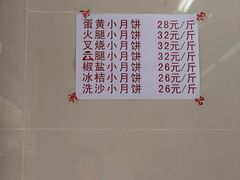 蛋黄小月饼 28元/斤
火腿小月饼 32元/斤
叉烧小月饼 32元/斤
云腿小月饼 32元/斤
椒盐小月饼 26元/斤
冰桔小月饼 26元/斤
洗沙小月饼 26元/斤